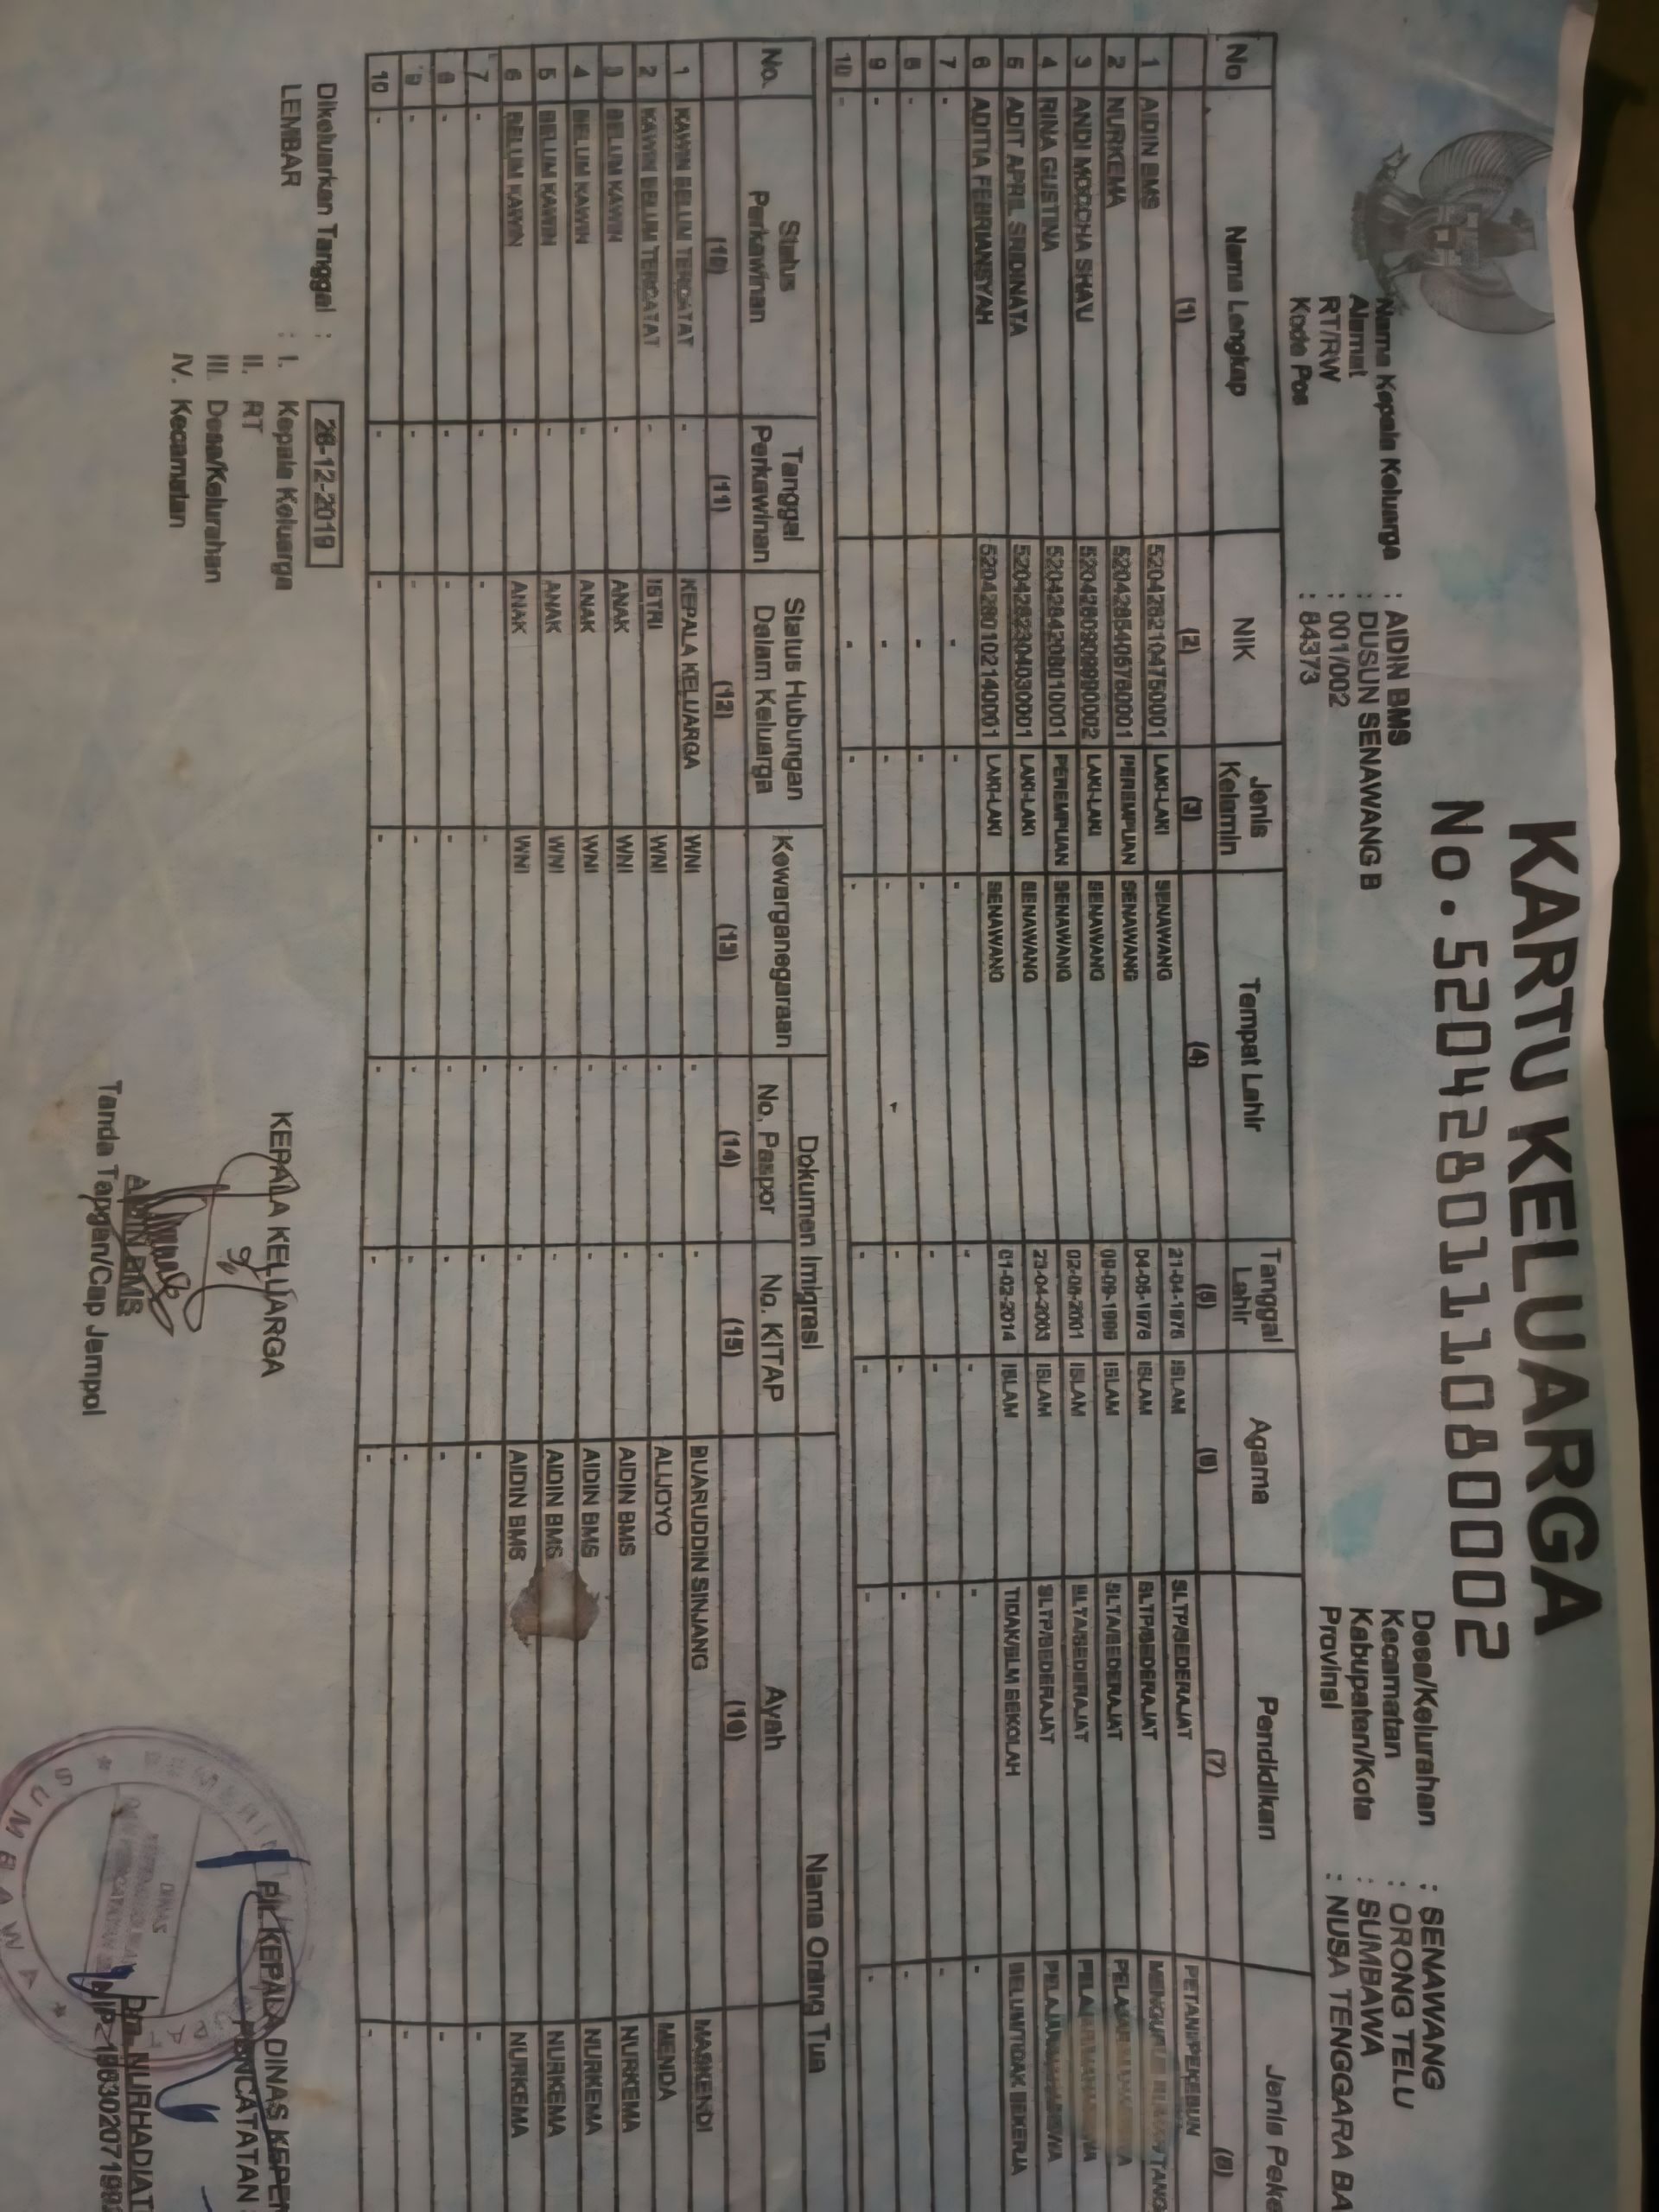 KARTU KELUARGA
No. 5204280111080002
Nama Kepala Keluarga : AIDIN BMS
Alamat : DUSUN SENAWANG B
RT/RW : 001/002
Kode Pos : 84373
Desa/Kelurahan : SENAWANG
Kecamatan : ORONG TELU
Kabupaten/Kota : SUMBAWA
Provinsi : NUSA TENGGARA BA
No Nama Lengkap NIK Jenis Kelamin Tempat Lahir Tanggal Lahir Agama Pendidikan Jenis Peke
(1) (2) (3) (4) (5) (6) (7) (8)
1 AIDIN BMS 5204282104750001 LAKI-LAKI SENAWANG ISLAM SLTP/SEDERAJAT PETANI/PEKEBUN
2 NURKEMA PEREMPUAN SENAWANG ISLAM SLTP/SEDERAJAT
3 ANDI MOCCHA SHAU LAKI-LAKI SENAWANG ISLAM SLTA/SEDERAJAT
4 RINA GUSTINA PEREMPUAN SENAWANG ISLAM SLTA/SEDERAJAT
5 ADIT APRIL SRIDINATA 5204282304030001 LAKI-LAKI SENAWANG 23-04-2003 ISLAM SLTP/SEDERAJAT
6 ADITIA FEBRIANSYAH 5204280102140001 LAKI-LAKI SENAWANG 01-02-2014 ISLAM TIDAK/BLM SEKOLAH BELUM/TIDAK BEKERJA
7 - - - - - - - -
8 - - - - - - - -
9 - - - - - - - -
10 - - - - - - - -
No. Status Perkawinan Tanggal Perkawinan Status Hubungan Dalam Keluarga Kewarganegaraan Dokumen Imigrasi Nama Orang Tua
No. Paspor No. KITAP Ayah
(10) (11) (12) (13) (14) (15) (16)
1 KAWIN BELUM TERCATAT - KEPALA KELUARGA WNI - - BUARUDDIN SINJANG MASKENDI
2 KAWIN BELUM TERCATAT - ISTRI WNI - - ALIJOYO MENDA
3 BELUM KAWIN - ANAK WNI - - AIDIN BMS NURKEMA
4 BELUM KAWIN - ANAK WNI - - AIDIN BMS NURKEMA
5 BELUM KAWIN - ANAK WNI - - AIDIN BMS NURKEMA
6 BELUM KAWIN - ANAK WNI - - AIDIN BMS NURKEMA
7 - - - - - - - -
8 - - - - - - - -
9 - - - - - - - -
10 - - - - - - - -
Dikeluarkan Tanggal : 26-12-2019
LEMBAR : I. Kepala Keluarga
II. RT
III. Desa/Kelurahan
IV. Kecamatan
KEPALA KELUARGA
AIDIN BMS
Tanda Tangan/Cap Jempol
Plt. KEPALA DINAS KEPEN
PENCATATAN
NURHADIAT
NIP.